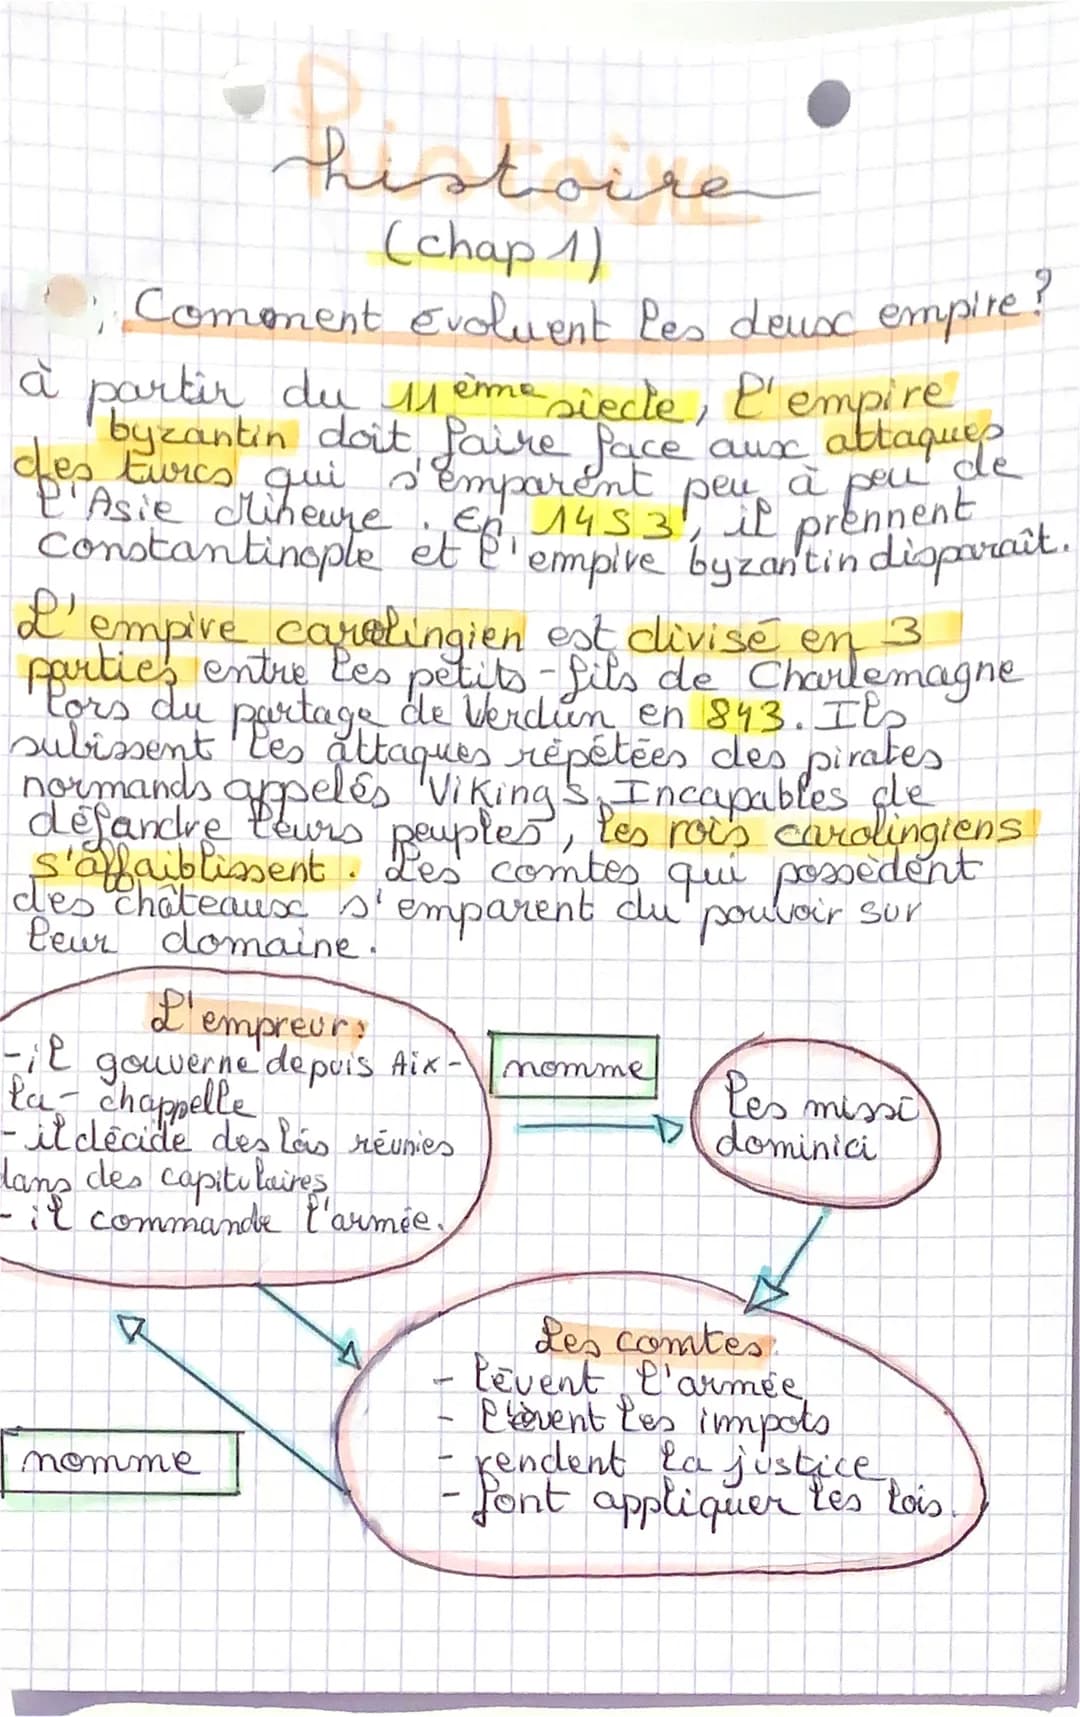 histoire
histoire
(chap 1)
Comment évoluent les deux empire ?
à partir du 11ème siecle, l'empire
byzantin doit faire face aux attaques
des turcs qui s'emparent peu à peu de
l'Asie Mineure. En 1453, il prennent
Constantinople et l'empire byzantin disparaît.
L'empire carolingien est divisé en 3
parties entre les petits-fils de Charlemagne
lors du partage de Verdun en 843. Ils
subissent les attaques répétées des pirates
normands appelés Vikings. Incapables de
défandre leurs peuples, les rois carolingiens
s'affaiblissent. Les comtes qui possèdent
des châteaux s'emparent du pouvoir sur
leur domaine.
L'empreur:
-il gouverne depuis Aix-
la-chappelle
-il décide des lois réunies
dans des capitulaires
-il commande l'armée.
nomme
les missi
dominici
Les comtes:
- lèvent l'armée
- lèvent les impots
- rendent la justice
- font appliquer les lois.
nomme